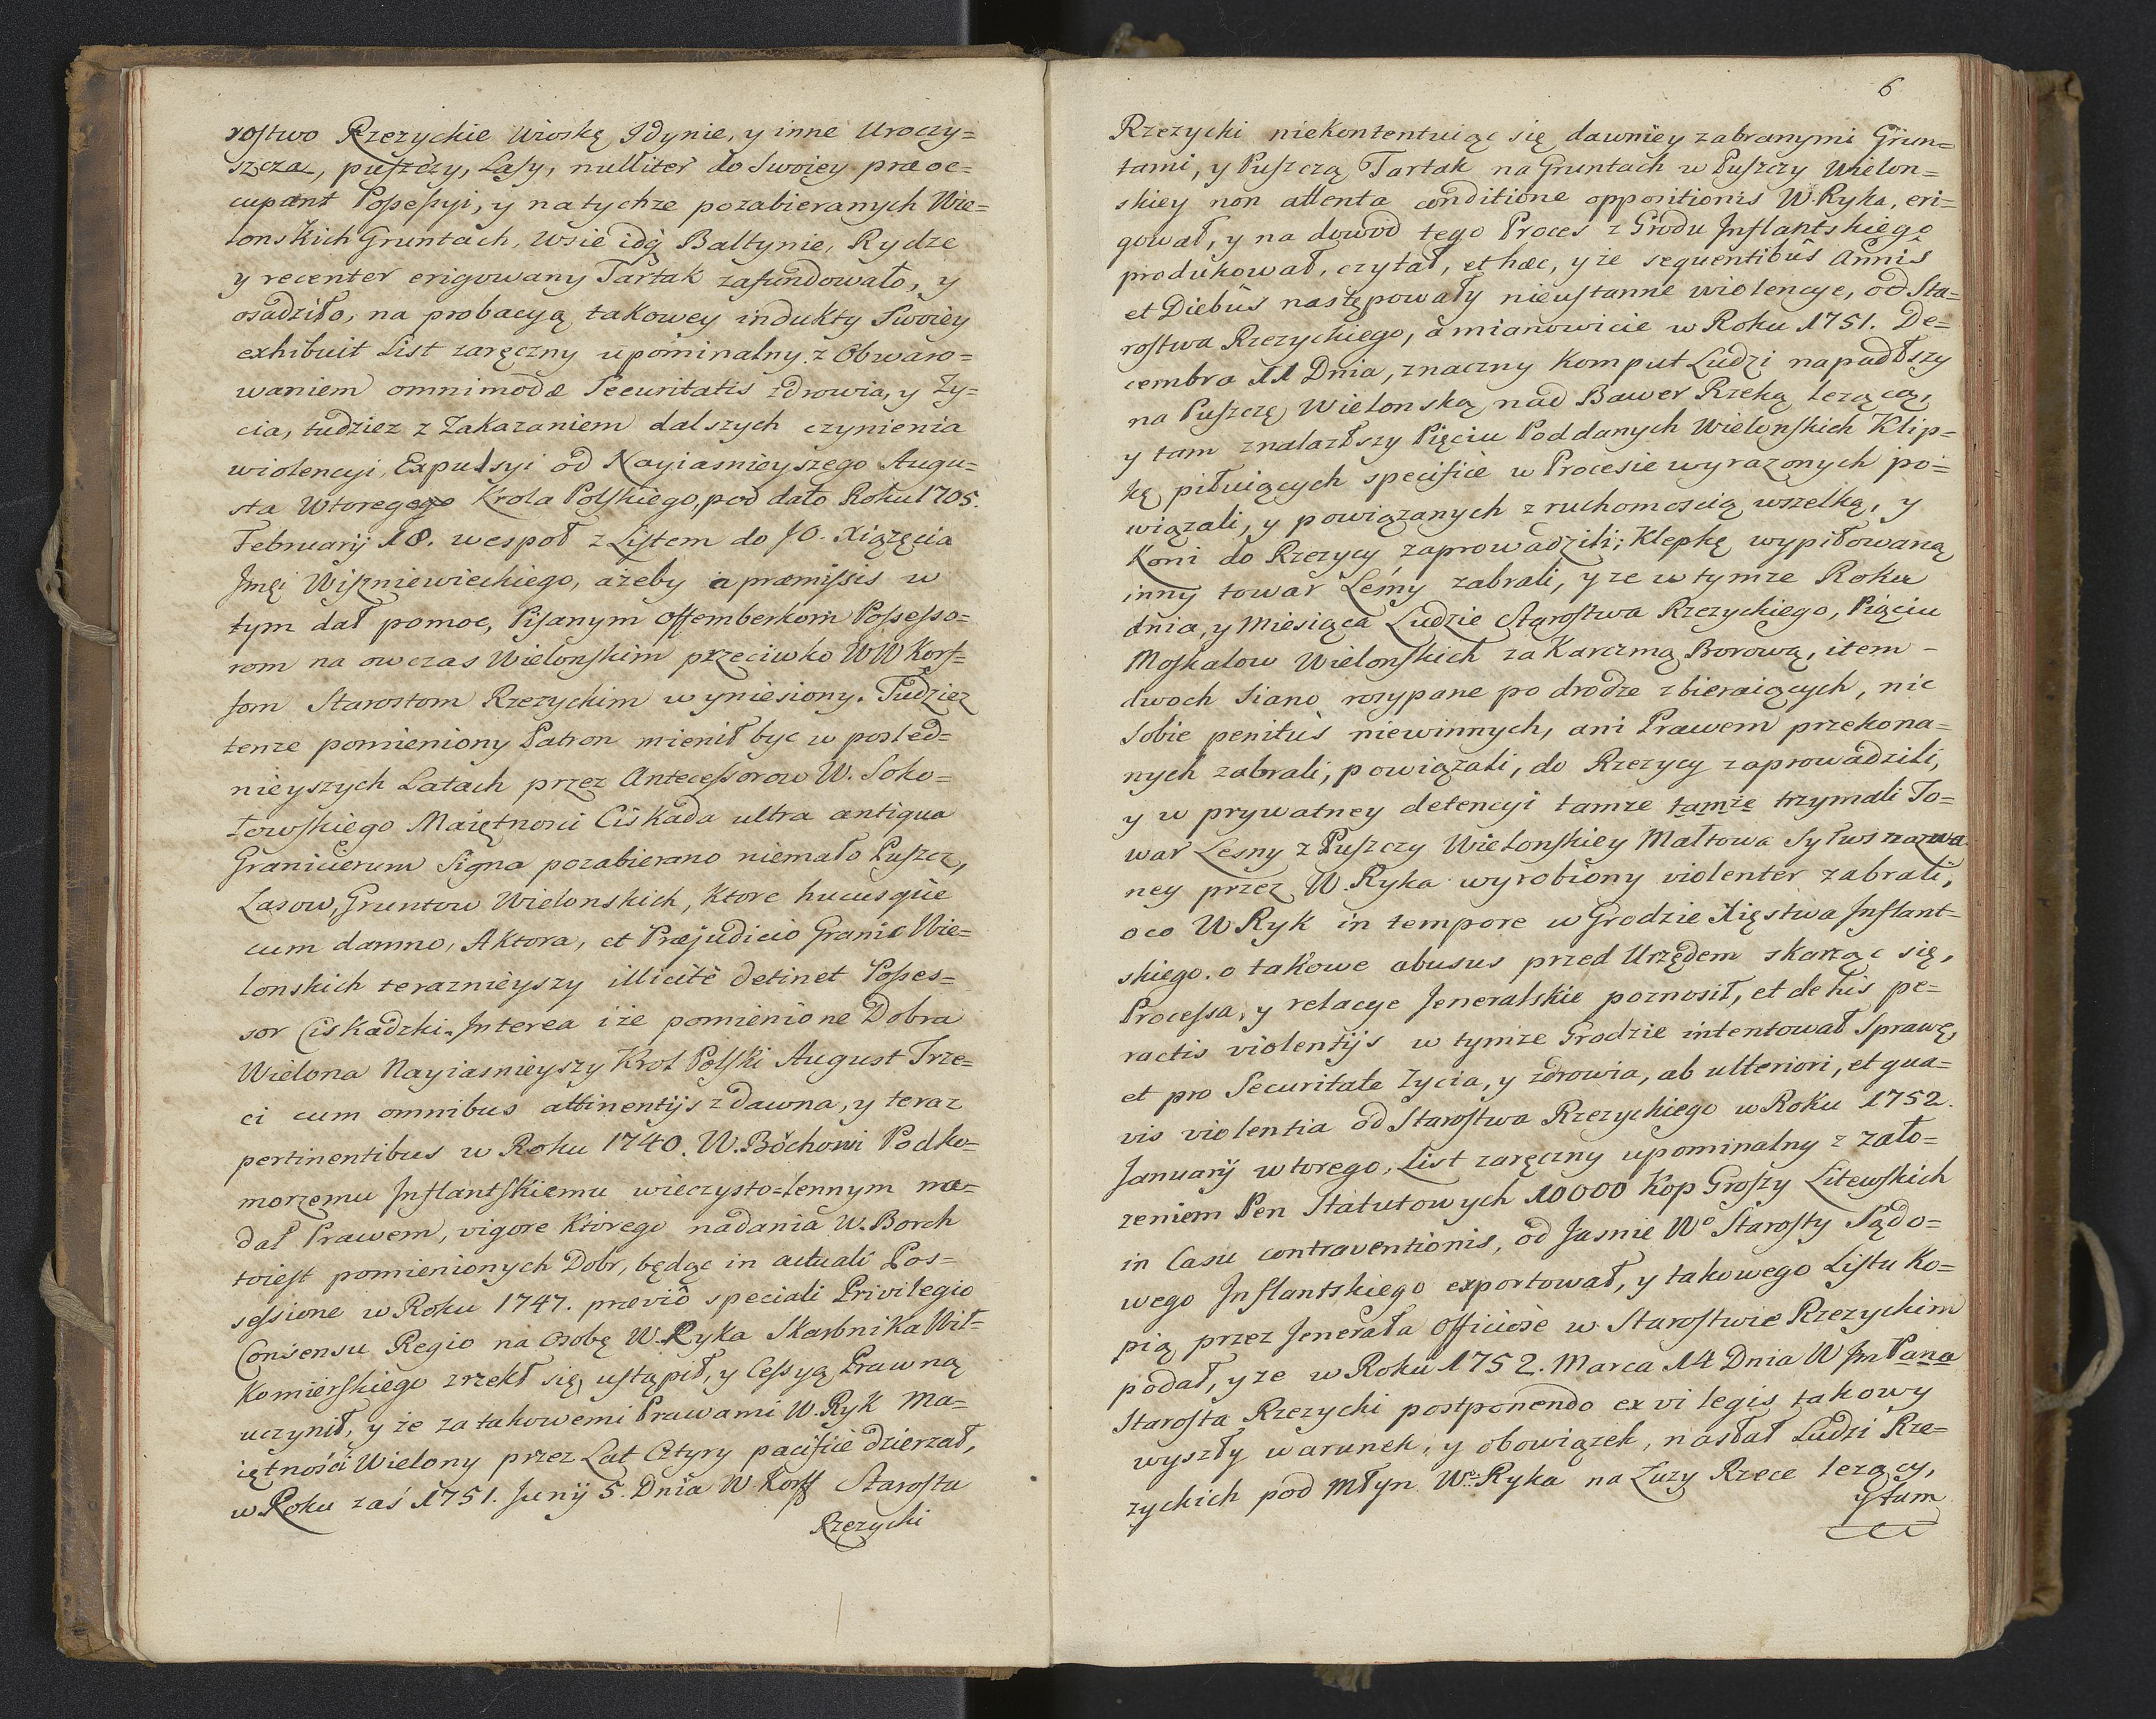 rostwo Rzezyckie Wioskę Idynie, y inne Uroczy=
szcza, puszczy, Lasy, nulliter do Swoiey præoc=
cupant Possessyi, y na tychże pozabieranych Wie=
lonskich Gruntach, Wsie idą Baltynie, Rydze
y recenter erigowany Tartak zafundowało, y
osadziło, na probacyą takowey indukty Swoiey
exhibuit List zaręczny upominalny z Obwaro=
waniem omnimodæ Securitatis zdrowia, y Ży=
cia, tudziez z Zakazaniem dalszych czynienia
wiolencyi, Expulsyi od Nayiasnieyszego Augu=
sta Wtorego Krola Polskiego, pod dato Roku 1705.
Februarij 18. wespoł z Listem do JO. Xiązęcia
Jmęi Wiszniewieckiego, ażeby a præmissis w
tym dał pomoc, Pisanym Offemberkom Possesso=
rom na owczas Wielonskim przeciwko WW Korf=
fom Starostom Rzezyckim wyniesiony. Tudziez
tenze pomieniony Patron mienił byc w posled=
nieyszych Latach przez Antecessorow W. Soko=
łowskiego Maiętnosci Ciskada ultra antiqua
Granicierum Signa pozabierano niemało Puszcz,
Lasow, Gruntow Wielonskich, Ktore hucusque
cum damno, Aktora, et Præjudicio Granic Wie=
lonskich teraznieyszy illicitè detinet Posses=
sor Ciskadzki. Interea iże pomienione Dobra
Wielona Nayiasnieyszy Krol Polski August Trze=
ci cum omnibus attinentijs zdawna, y teraz
pertinentibus w Roku 1740. W. Bóchowi Podko=
morzemu Inflantskiemu wieczysto=lennym na=
dał Prawem, vigore Ktorego nadania W. Borch
toiest pomienionych Dobr, będąc in actuali Pos=
sessione w Roku 1747. præviô speciali Privilegio
Consensu Regio na Osobę W. Ryka Skarbnika Wił=
Komierskiego zrzekł się, ustąpił, y Cessyą Prawną
uczynił, y że za takowemi Prawami W. Ryk Ma=
iętności Wielony przez Lat Cztyry pacificè dzierzał,
w Roku zaś 1751. Junij 5. Dnia W Korff Starosta
Rzezycki
6
Rzezycki niekontentuiąc się dawniey zabranymi Grun=
tami, y Puszczą Tartak na Gruntach w Puszczy Wielon=
skiey non attenta conditione oppositionis W. Ryka, eri=
gował, y na dowod tego Proces z Grodu Inflantskiego
produkował, czytał, et hæc, y że sequentibûs Annis
et Diebûs następowały nieustanne wiolencye, od Sta=
rostwa Rzezyckiego, a mianowicie w Roku 1751. De=
cembra 11 Dnia, znaczny Komput Ludzi napadłszy
na Puszczę Wielonską nad Bawer Rzeką lezącą,
y tam znalazłszy Pięciu Poddanych Wielonskich Klip=
kę piłuiących specificè w Procesie wyrazonych po=
wiązali, y powiązanych z ruchomoscią wszelką, y
Koni do Rzezycy zaprowadzili; Klepkę wypiłowaną
inny towar Leśny zabrali, y ze w tymze Roku
dnia, y Miesiąca Ludzie Starostwa Rzezyckiego, Pięciu
Moskalow Wielonskich za Karczmą Borową, item -
dwoch Siano rozypane po drodze zbieraiących, nic
Sobie penitùs niewinnych, ani Prawem przekona=
nych zabrali, powiązali, do Rzezycy zaprowadzili,
y w prywatney detencyi tamze tamże trzymali To=
war Lesny z Puszczy Wielonskiey Małtowa Syłus nazwa=
ney przez W. Ryka wyrobiony violenter zabrali,
oco W Ryk in tempore w Grodzie Xięstwa Inflant=
skiego. o takowe abusus przed Urzędem skarząc się,
Processa, y relacye Jeneralskie poznosił, et de his pe=
ractis violentijs w tymze Grodzie intentował Sprawę,
et pro Securitate Zycia, y zdrowia, ab ulteriori, et qua=
vis violentia od Starostwa Rzezyckiego w Roku 1752.
Januarij wtorego, List zaręczny upominalny z zało=
zeniem Pen Statutowych 10000 Kop Groszy Litewskich
in Casu contraventionis, od Jasnie Wo Starosty Sądo=
wego Inflantskiego exportował, y takowego Listu Ko=
pią przez Jenerała Officiosè w Starostwie Rzezyckim
podał, y ze w Roku 1752. Marca 14 Dnia W Jm Pana
Starosta Rzezycki postponendo ex vi legis takowy
wyszły warunek, y obowiązek, nasłał Ludzi Rze=
zyckich pod Młyn Wo Ryka na Zuzy Rzece lezący,
y tam